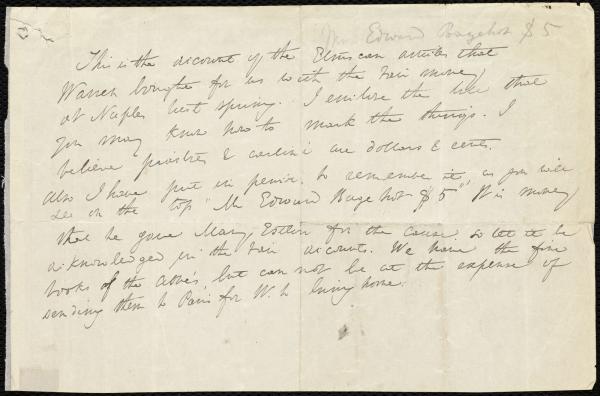 Mr Edward Bagehot $5
This is the account of the Etruscan articles that
Warren bought for us with the Fair money
at Naples last spring. I enclose the law that
you may know how to mark the things. I
believe piastres & carlini are dollars & cents.
Also I have put in pencil, to remember it, as you will
see on the top "Mr Edward Bagehot $5" It is money
that he gave Mary Estlin for the cause, so let it be
acknowledged in the Fair account. We have the fine
books of the Abbé's, but can not be at the expense of
sending them to Paris for W. to bring home.